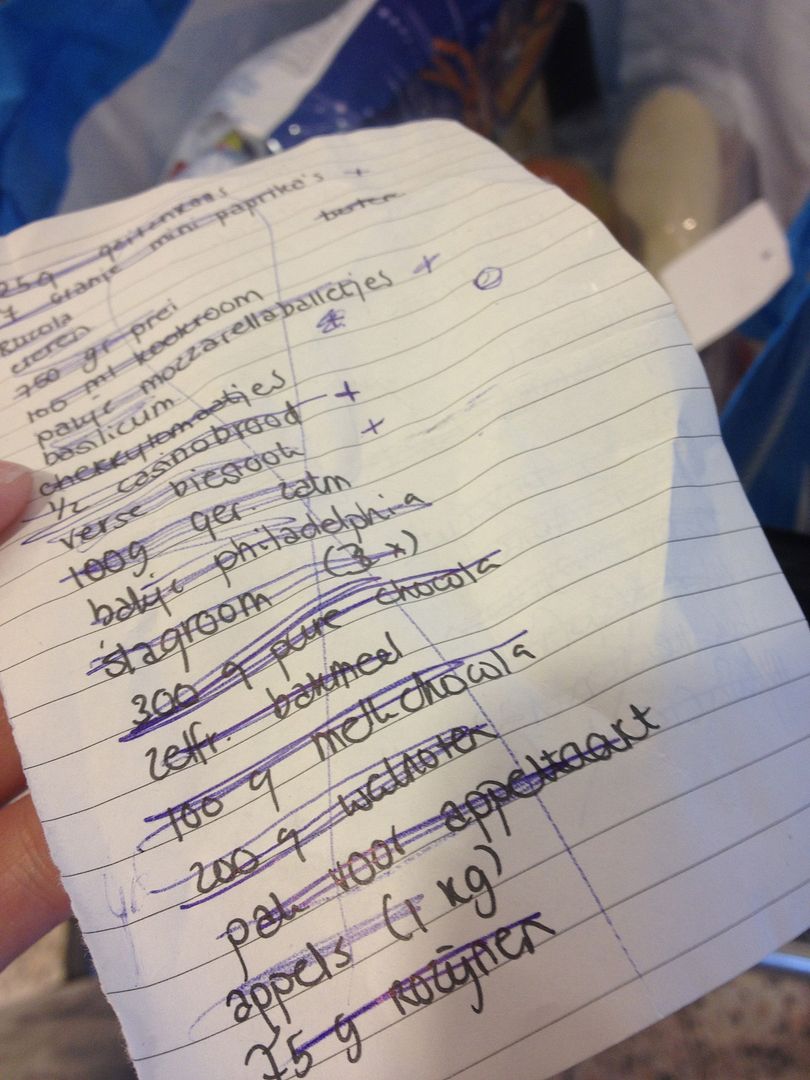 25g geitenkaas
7 oranje mini paprika's +
boter
Rucola
eieren
750 gr prei
100 ml kookroom
pakje mozzarellaballetjes +
basilicum
cherrytomaatjes
1/2 casinobrood +
verse bieslook +
100g ger. zalm
bakje philadelphia
slagroom (3 x)
300 g pure chocola
zelfr. bakmeel
100 g melkchocola
200 g walnoten
pak voor appeltaart
appels (1 kg)
75 g rozijnen